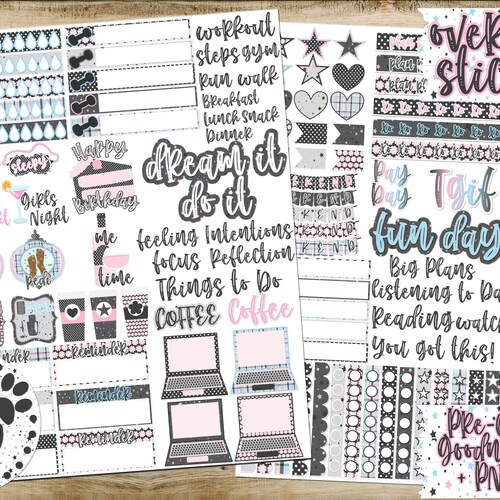 workout
steps gym
Run walk
Breakfast
lunch snack
Dinner
Sleepy
Happy
Birthday
Girls
Night
me
time
Pedi
dream it
do it
feeling Intentions
focus Reflection
Things to Do
COFFEE Coffee
Reminder
Reminder
Reminder
plan
Plan
KEND
Pay
Day
Day
TGIF
fun day
Big Plans
listening to Da
Reading watch
You got this!
over
stic
Pre-
Goodn